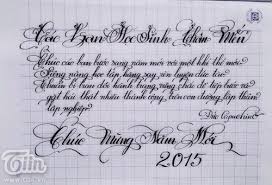 Các Bạn Học Sinh thân mến
Chúc các bạn bước sang năm mới với một khí thế mới
Siêng năng học tập hăng say rèn luyện đức trí
Chuẩn bị hành trang vững chắc để tiếp bước ra
gặt hái thật nhiều thành công trên con đường lập thân
lập nghiệp
Chúc Mừng Năm Mới
2015
Tiin